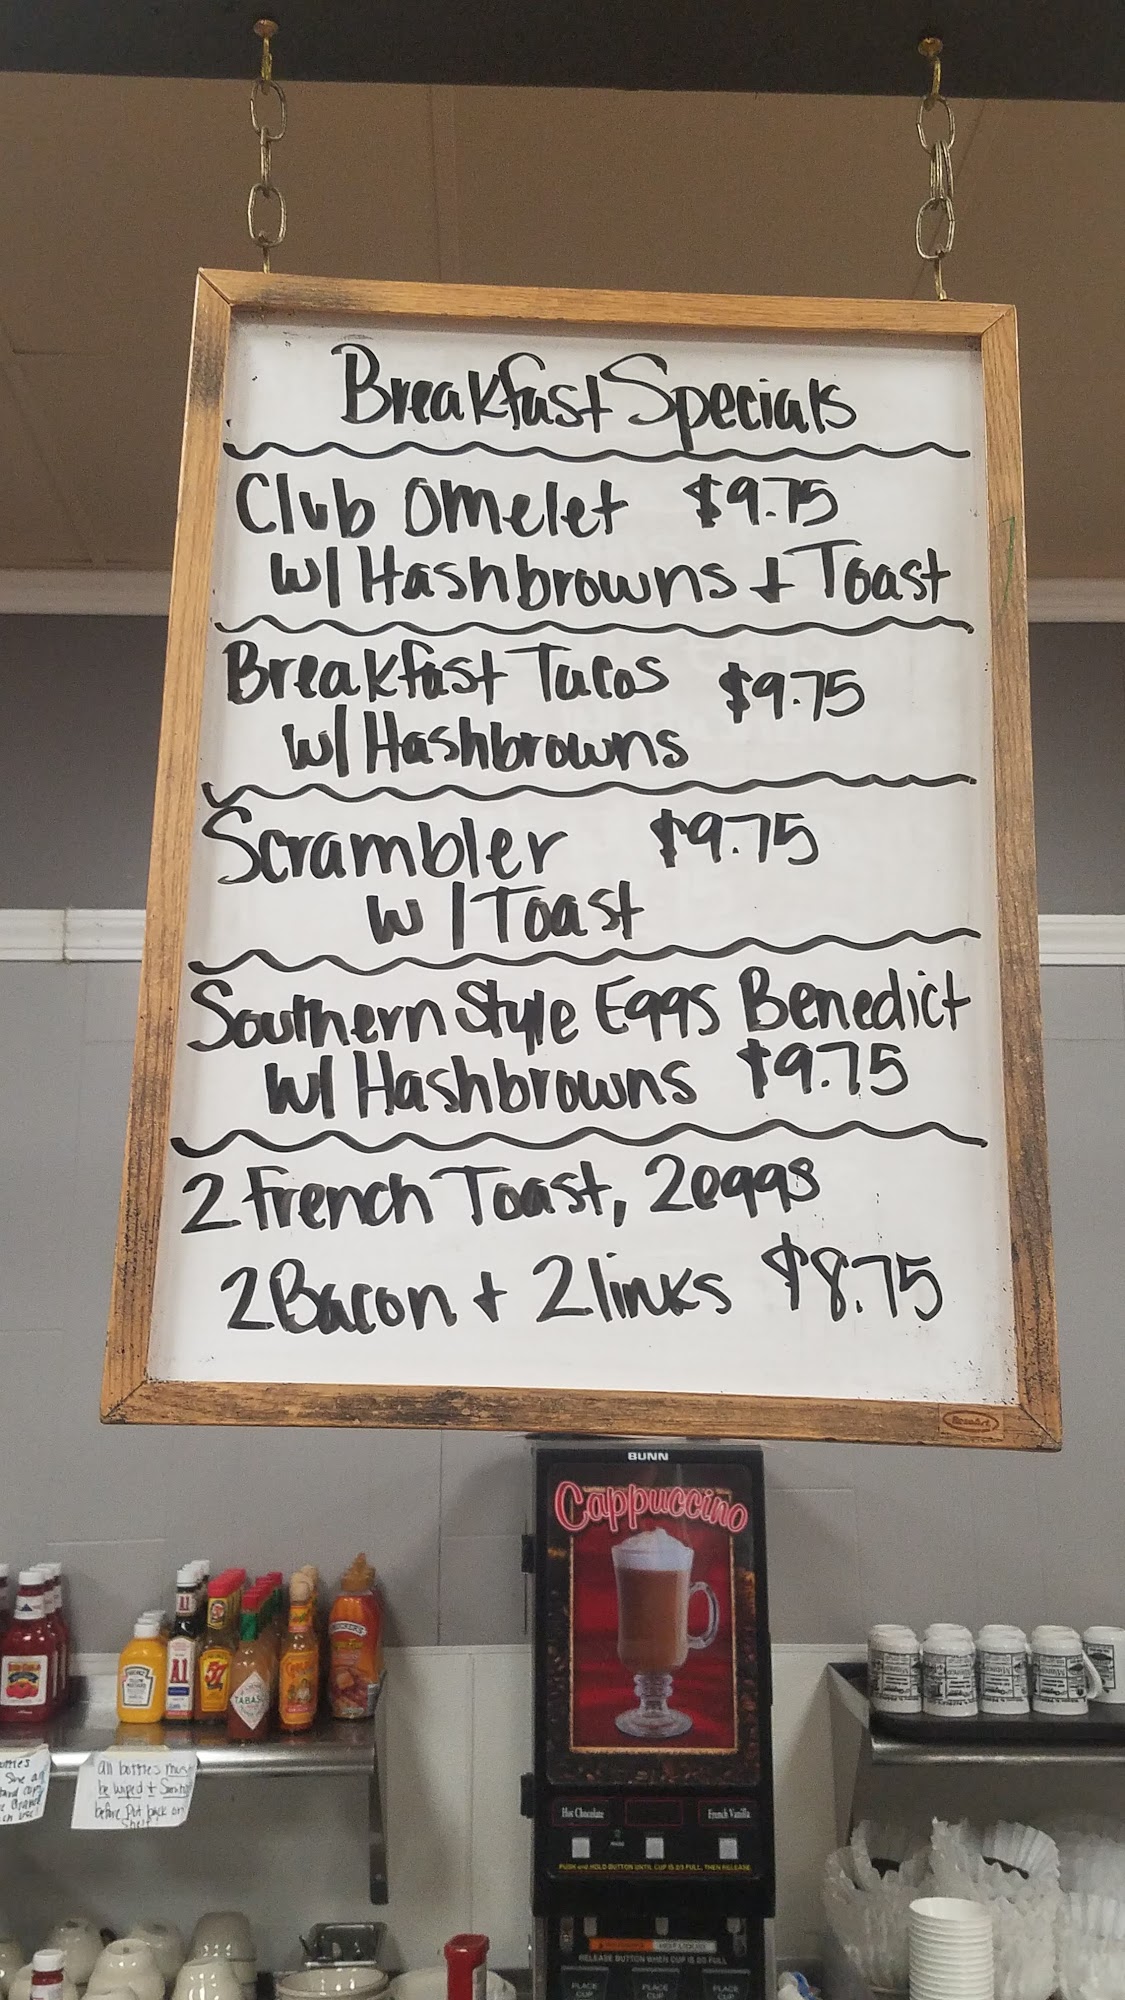 Breakfast Specials
Club Omelet $9.75
w/ Hashbrowns + Toast
Breakfast Tacos $9.75
w/ Hashbrowns
Scrambler $9.75
w/ Toast
Southern Style Eggs Benedict
w/ Hashbrowns $9.75
2 French Toast, 2 eggs
2 Bacon + 2 links $8.75
BUNN
Cappuccino
HEINZ
A1
57
TABASCO
all bottles must
be wiped +
before put back on
shelf!
Hot Chocolate
French Vanilla
PUSH and HOLD BUTTON UNTIL CUP IS 2/3 FULL, THEN RELEASE
RELEASE BUTTON WHEN CUP IS 2/3 FULL
PLACE CUP
PLACE CUP
PLACE CUP